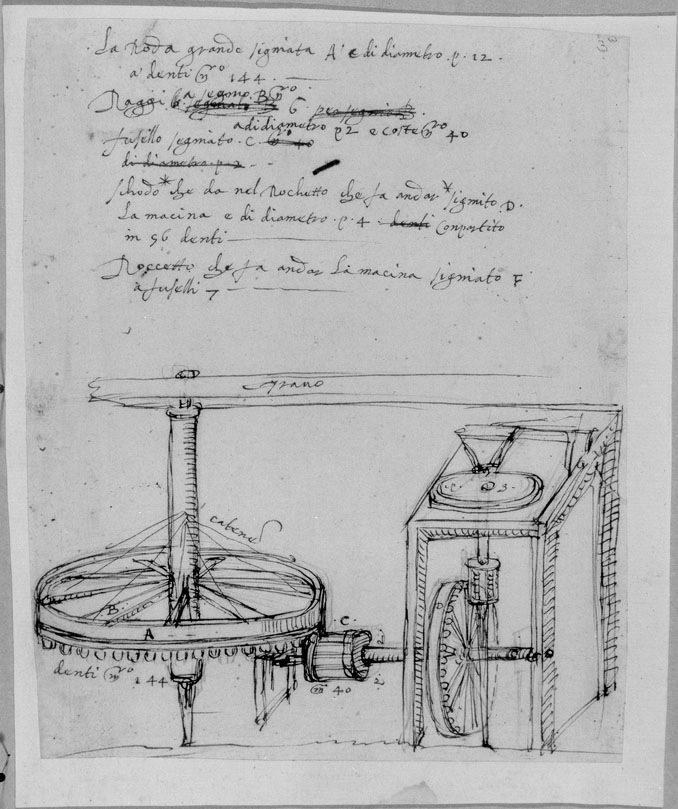 La Roda grande signiata A' e di diametro p. 12.
a denti nro 144.
Raggi a segno B nro 6
a di diametro p 2 e coste nro 40
fusello segniato. C
di diametro p. 2
schodo * che da nel Rochetto che fa andar * signito D.
La macina e di diametro. p. 4 denti Conpartito
in 56 denti
Roccetto che fa andar La macina signiato F
a fuselli 7
grano
catene
B.
A
C.
denti nro 144
nro 40
D